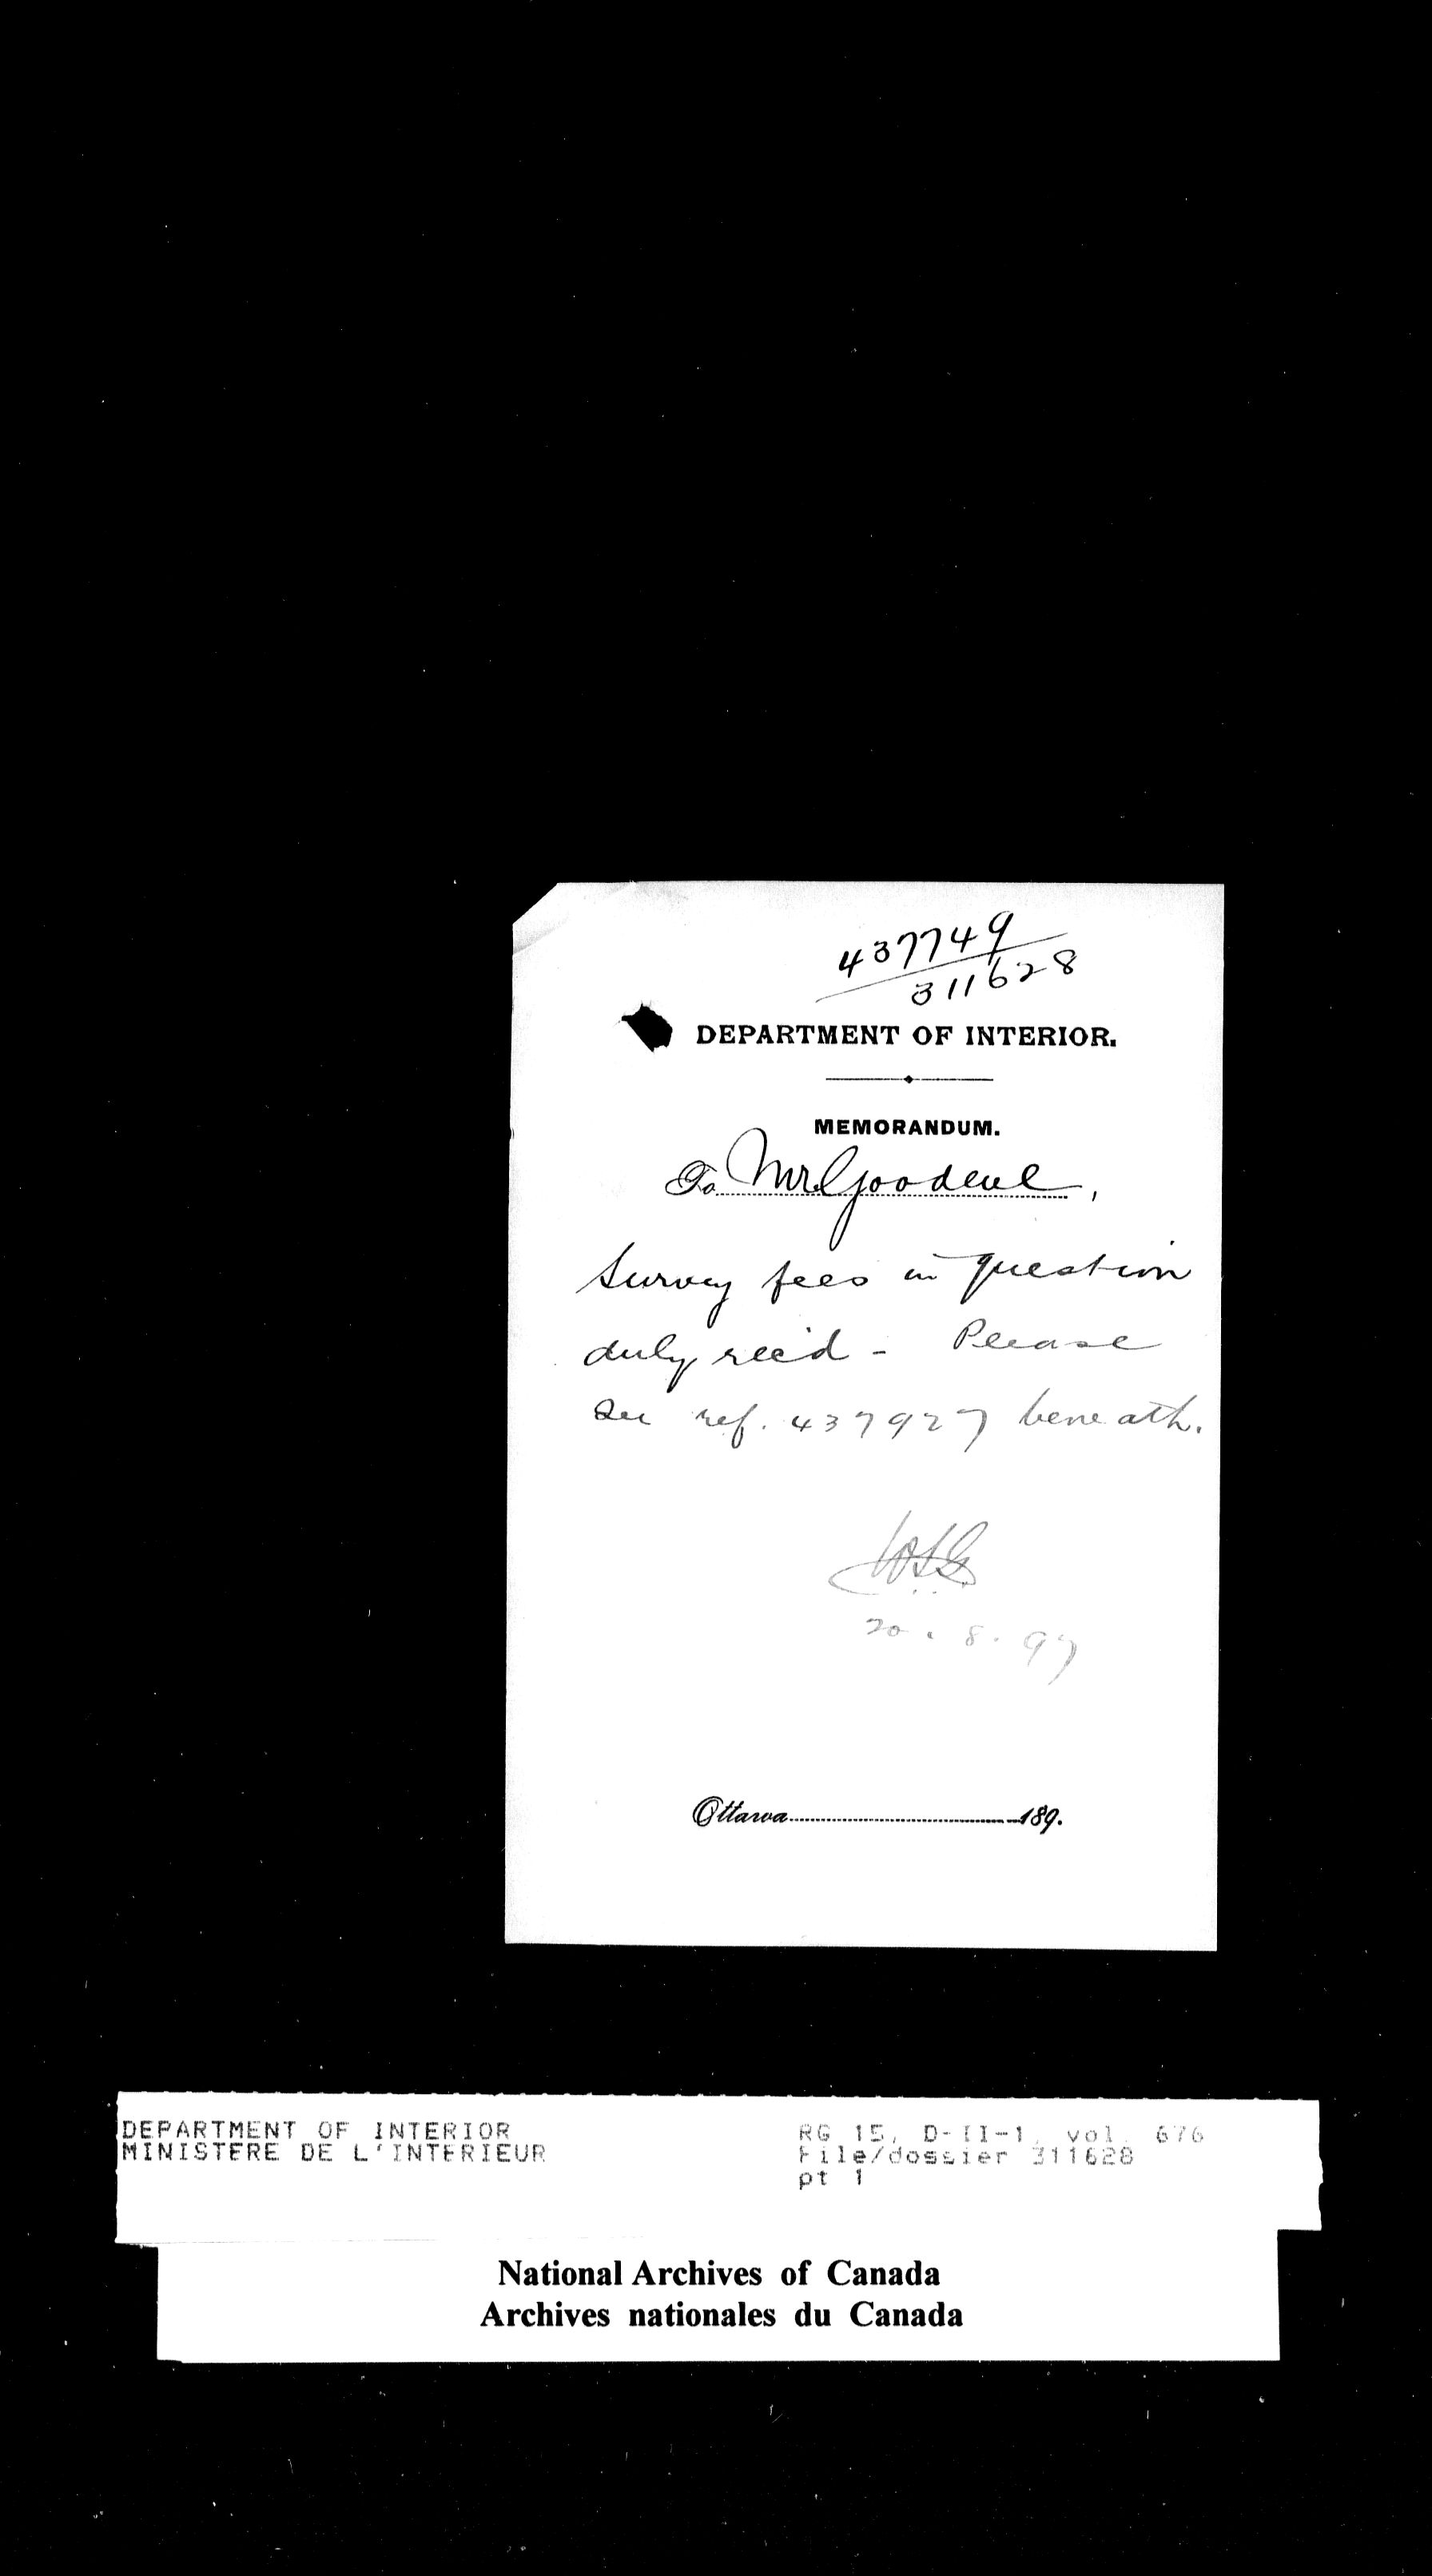 437749
311628
DEPARTMENT OF INTERIOR.
MEMORANDUM.
To Mr Goodeve,
Survey fees in question
duly rec'd - Please
see ref. 437927 beneath.
20.8.97
Ottawa 189.
DEPARTMENT OF INTERIOR
MINISTERE DE L'INTERIEUR
RG 15, D-II-1, vol. 676
File/dossier 311628
pt 1
National Archives of Canada
Archives nationales du Canada